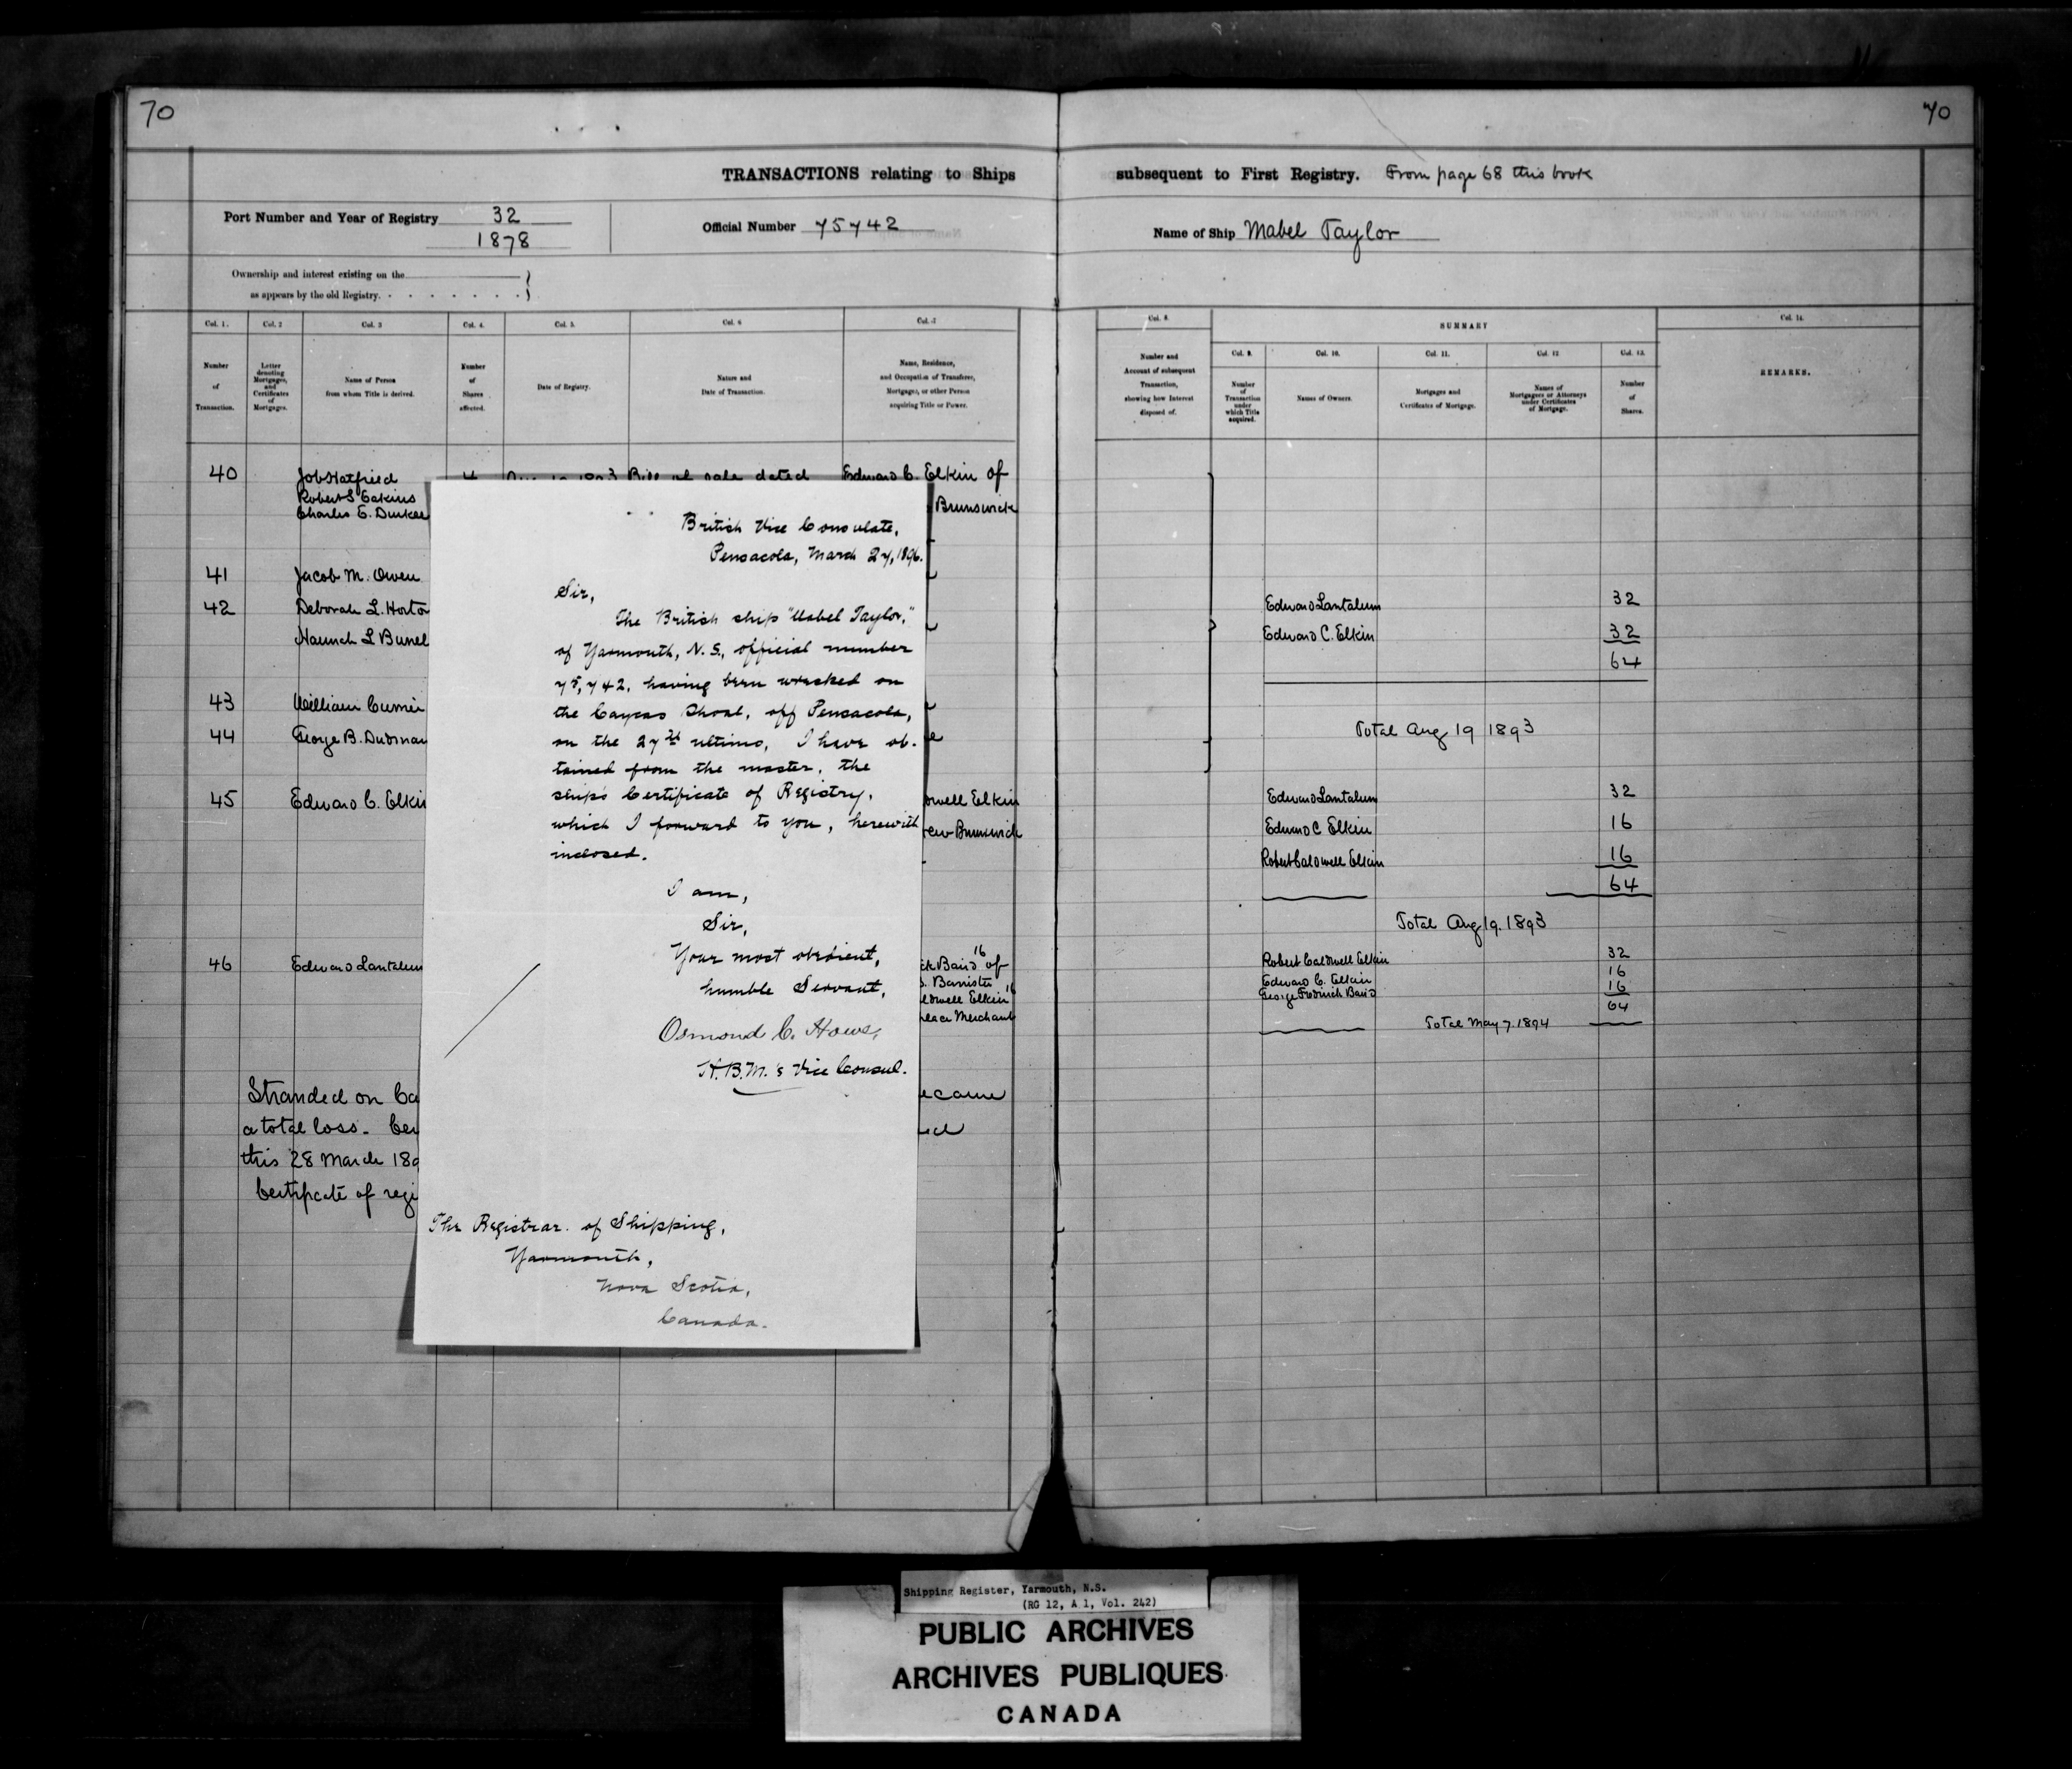 70
70
TRANSACTIONS relating to Ships subsequent to First Registry. From page 68 this book
Port Number and Year of Registry 32
1878
Official Number 75742
Name of Ship Mabel Taylor
Ownership and interest existing on the
as appears by the old Registry.
Col. 1.
Number
of
Transaction.
Col. 2
Letter
denoting
Mortgages,
and
Certificates
of
Mortgages.
Col. 3
Name of Person
from whom Title is derived.
Col. 4.
Number
of
Shares
affected.
Col. 5.
Date of Registry.
Col. 6
Nature and
Date of Transaction.
Col. 7
Name, Residence,
and Occupation of Transferee,
Mortgagee, or other Person
acquiring Title or Power.
Col. 8.
Number and
Account of subsequent
Transaction,
showing how Interest
disposed of.
SUMMARY
Col. 9.
Number
of
Transaction
under
which Title
acquired.
Col. 10.
Names of Owners.
Col. 11.
Mortgages and
Certificates of Mortgage.
Col. 12
Names of
Mortgagees or Attorneys
under Certificates
of Mortgage.
Col. 13.
Number
of
Shares.
Col. 14.
REMARKS.
40 Job Hatfield 4 1893 Bill of sale dated Edward C. Elkin of
Robert S Eakins
Charles E. Durkee Brunswick
41 Jacob M. Owen
42 Deborah L. Horto
43 William
44 George B.
45 Edward C. Elkin
Elkin
Brunswick
46 Edward Lantalum
16
Baird of
Barrister
Elkin 16
Merchant
Stranded on Ca
ecame
a total loss. Cer
this 28 March 189
Certificate of regi
British Vice Consulate,
Pensacola, March 27, 1896.
Sir,
The British ship "Mabel Taylor,"
of Yarmouth, N.S., official number
75,742, having been wrecked on
the Caycas Shoal, off Pensacola,
on the 27th ultimo, I have ob-
tained from the master, the
ship's Certificate of Registry,
which I forward to you, herewith
inclosed.
I am,
Sir,
Your most obedient,
humble Servant,
Osmond C. Howe,
H.B.M.'s Vice Consul.
The Registrar of Shipping,
Yarmouth,
Nova Scotia,
Canada.
Edward Lantalum 32
Edward C. Elkin 32
64
Total Aug 19 1893
Edward Lantalum 32
Edward C Elkin 16
Robert Caldwell Elkin 16
64
Total Aug 19. 1893
Robert Caldwell Elkin 32
Edward C. Elkin 16
George Fredrick Baird 16
64
Total May 7. 1894
Shipping Register, Yarmouth, N.S.
(RG 12, A 1, Vol. 242)
PUBLIC ARCHIVES
ARCHIVES PUBLIQUES
CANADA